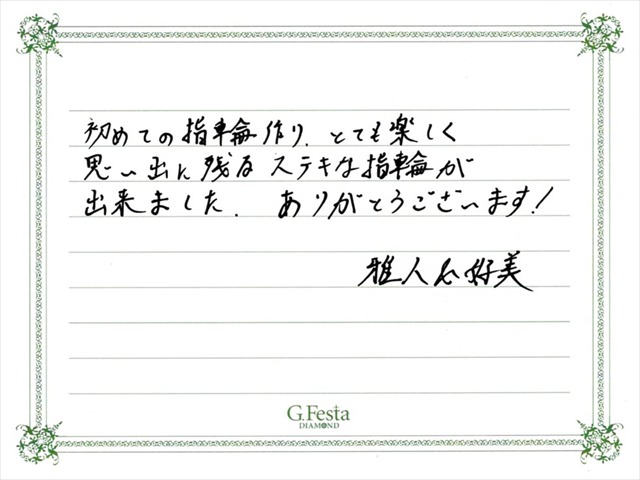 初めての指輪作り、とても楽しく
思い出に残るステキな指輪が
出来ました。ありがとうございます!
雅人&好美
G.Festa
DIAMOND